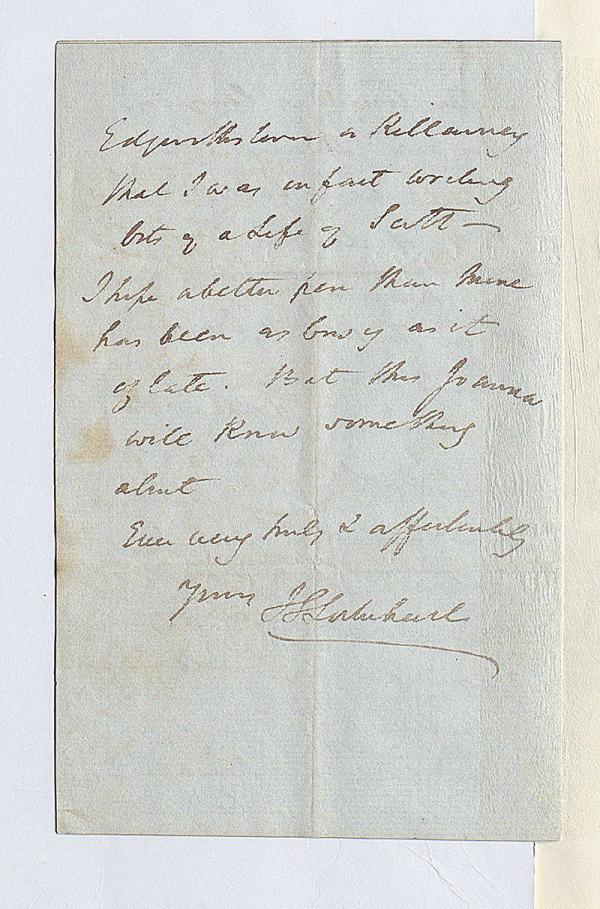 Edgeworthstown or Killarney
that I was in fact working
bits of a Life of Scott —
I hope a better pen than mine
has been as busy as it
of late. But this Joanna
will know something
about
Ever very truly & affectionately
Yours JGLockhart